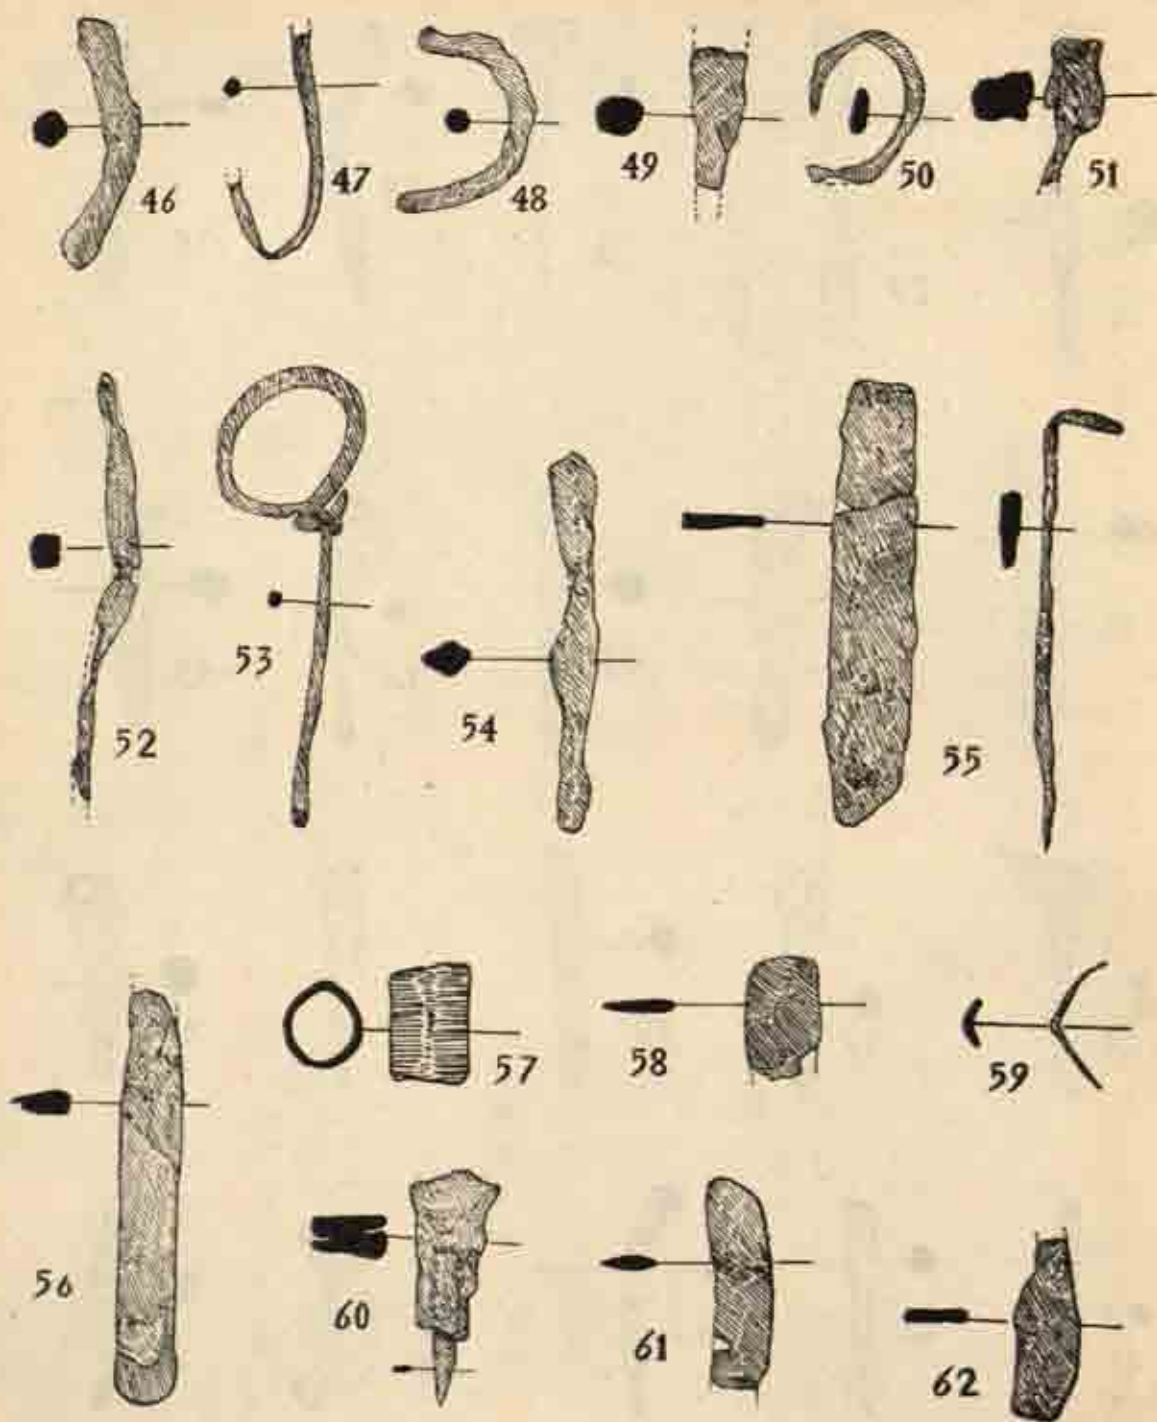 46 47 48 49 50 51
52 53 54 55
56 57 58 59
60 61 62